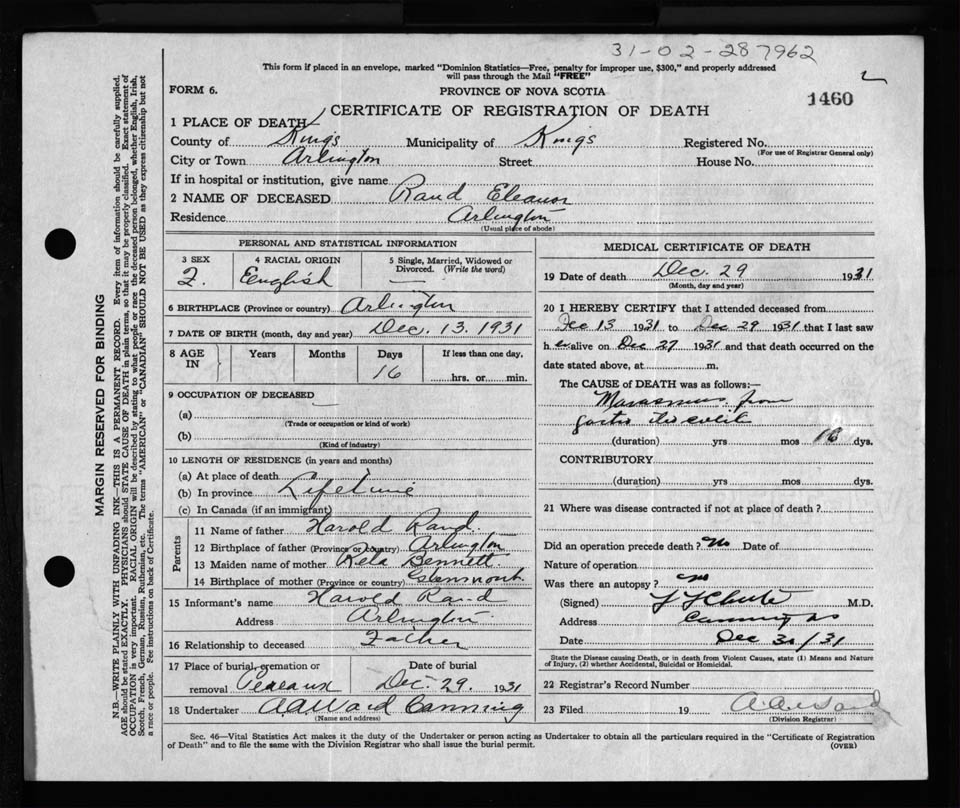 31-02-287962
This form if placed in an envelope, marked "Dominion Statistics—Free, penalty for improper use, $300," and properly addressed
will pass through the Mail "FREE"
FORM 6.
PROVINCE OF NOVA SCOTIA
1460
CERTIFICATE OF REGISTRATION OF DEATH
1 PLACE OF DEATH
County of Kings Municipality of Kings Registered No.
(For use of Registrar General only)
City or Town Arlington Street House No.
If in hospital or institution, give name
2 NAME OF DECEASED Rand Eleanor
Residence Arlington
(Usual place of abode)
PERSONAL AND STATISTICAL INFORMATION
3 SEX 4 RACIAL ORIGIN 5 Single, Married, Widowed or
Divorced. (Write the word)
F. English —
6 BIRTHPLACE (Province or country) Arlington
7 DATE OF BIRTH (month, day and year) Dec. 13. 1931
8 AGE IN Years Months Days If less than one day,
16 hrs. or min.
9 OCCUPATION OF DECEASED
(a)
(Trade or occupation or kind of work)
(b)
(Kind of industry)
10 LENGTH OF RESIDENCE (in years and months)
(a) At place of death
(b) In province Lifetime
(c) In Canada (if an immigrant)
Parents
11 Name of father Harold Rand
12 Birthplace of father (Province or country) Arlington
13 Maiden name of mother Bennett
14 Birthplace of mother (Province or country)
15 Informant's name Harold Rand
Address Arlington
16 Relationship to deceased Father
17 Place of burial, cremation or Date of burial
removal Pereaux Dec. 29. 1931
18 Undertaker A A Ward Canning
(Name and address)
MEDICAL CERTIFICATE OF DEATH
19 Date of death Dec. 29 1931
(Month, day and year)
20 I HEREBY CERTIFY that I attended deceased from
Dec 13 1931 to Dec 29 1931 that I last saw
her alive on Dec 27 1931 and that death occurred on the
date stated above, at m.
The CAUSE of DEATH was as follows:—
Marasmus from
(duration) yrs mos dys.
CONTRIBUTORY
(duration) yrs mos dys.
21 Where was disease contracted if not at place of death ?
Did an operation precede death ? No Date of
Nature of operation
Was there an autopsy ? no
(Signed) M.D.
Address Canning NS
Date Dec 30/31
State the Disease causing Death, or in death from Violent Causes, state (1) Means and Nature
of Injury, (2) whether Accidental, Suicidal or Homicidal.
22 Registrar's Record Number
23 Filed 19 A. A. Ward
(Division Registrar)
Sec. 46—Vital Statistics Act makes it the duty of the Undertaker or person acting as Undertaker to obtain all the particulars required in the "Certificate of Registration
of Death" and to file the same with the Division Registrar who shall issue the burial permit.
(OVER)
MARGIN RESERVED FOR BINDING
N.B.—WRITE PLAINLY WITH UNFADING INK—THIS IS A PERMANENT RECORD. Every item of information should be carefully supplied.
AGE should be stated EXACTLY. PHYSICIANS should STATE CAUSE OF DEATH in plain terms, so that it may be properly classified. Exact statement of
OCCUPATION is very important. RACIAL ORIGIN will be described by stating to what people or race the deceased person belonged, whether English, Irish,
Scotch, French, German, Russian, Ruthenian, etc. The terms "AMERICAN" or "CANADIAN" SHOULD NOT BE USED as they express citizenship but not
a race or people. See instructions on back of Certificate.